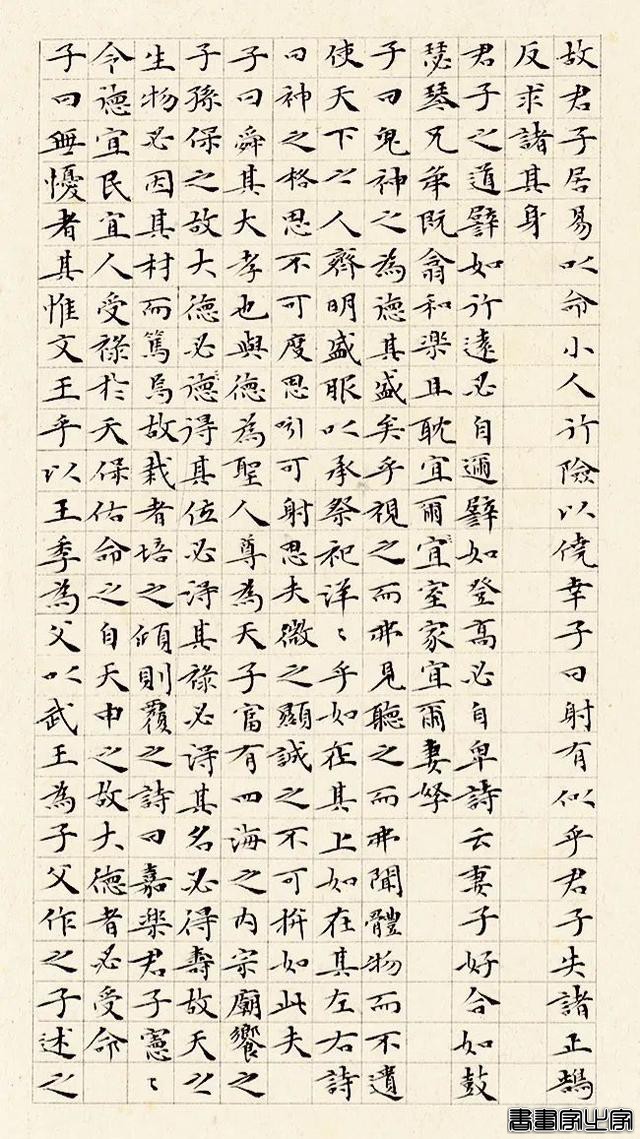 故君子居易以命小人行險以僥幸子曰射有似乎君子失諸正鵠
反求諸其身
君子之道譬如行遠必自邇譬如登高必自卑詩云妻子好合如鼓
瑟琴兄弟既翕和樂且耽宜爾宜室家宜爾妻孥
子曰鬼神之為德其盛矣乎視之而弗見聽之而弗聞體物而不遺
使天下之人齊明盛服以承祭祀洋〻乎如在其上如在其左右詩
曰神之格思不可度思矧可射思夫微之顯誠之不可揜如此夫
子曰舜其大孝也與德為聖人尊為天子富有四海之内宗廟饗之
子孫保之故大德必德得其位必得其祿必得其名必得壽故天之
生物必因其材而篤焉故栽者培之傾則覆之詩曰嘉樂君子憲〻
令德宜民宜人受祿於天保佑命之自天申之故大德者必受命
子曰無懮者其惟文王乎以王季為父以武王為子父作之子述之
書畫家之家